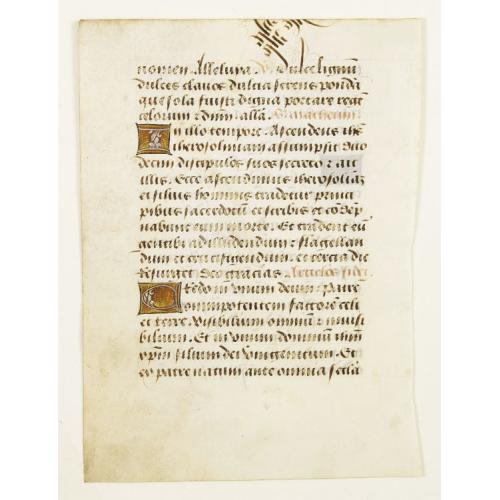 nomen Alleluya. V. Dulce lignū
dulces clavos dulcia ferens pondā
que sola fuisti digna portare regē
celorum & dnm̄. allā.
In illo tempore. Ascendens ihūs
iherosolimam assumpsit duo
decim discipulos suos secreto & ait
illis. Ecce ascendimus iherosolimā
et filius hominis tradetur princi
pibus sacerdotū et scribis et cōdēp
nabunt eum morte. Et tradent eū
gentibꝰ ad illudendum & flagellan
dum et crucifigendum. et tercia die
Resurget Deo gracias. Articles fidei.
Credo in unum deum. Patrē
omnipotentem factorē celi
et terre. visibilium omniū & invisi
bilium. Et in unum dominum ihūm
xp̄m filium dei unigenitum. Et
ex patre natum ante omnia seclā